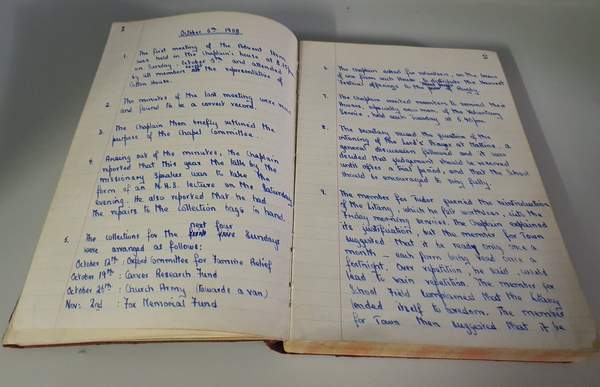 2
October 5th 1958
1. The first meeting of the Advent term
was held in the Chaplain's house at 8.15pm
on Sunday, October 5th and attended
by all members except the representative of
Cotton House.
2. The minutes of the last meeting were read
and found to be a correct record.
3. The Chaplain then briefly outlined the
purpose of the Chapel Committee.
4. Arising out of the minutes, the Chaplain
reported that this year the talk by the
missionary speaker was to take the
form of an N.H.S. lecture on the Saturday
evening. He also reported that he had
the repairs to the collection bags in hand.
5. The collections for the next four Sundays
were arranged as follows:
October 12th : Oxford Committee for Famine Relief
October 19th : Cancer Research Fund
October 26th : Church Army (towards a van)
Nov: 2nd : Fox Memorial Fund
6. The Chaplain asked for volunteers, on the basis
of one from each House to distribute the Harvest
Festival offerings to the of Rugby.
7. The Chaplain wanted members to remind their
Houses, especially new men, of the Voluntary
Service, held each Tuesday at 6.40pm.
8. The Secretary raised the question of the
intoning of the Lord's Prayer at Matins. A
general discussion followed and it was
decided that judgement should be reserved
until after a trial period, and that the School
should be encouraged to sing fully.
9. The member for Tudor queried the reintroduction
of the Litany, which he felt worthless, into the
Friday morning service. The Chaplain explained
its justification, but the member for Town
suggested that it be read only once a
month – each form being read once a
fortnight. Over repetition, he said, would
lead to vain repetition. The member for
School Field complained that the Litany
lended itself to boredom. The member
for Town then suggested that it be